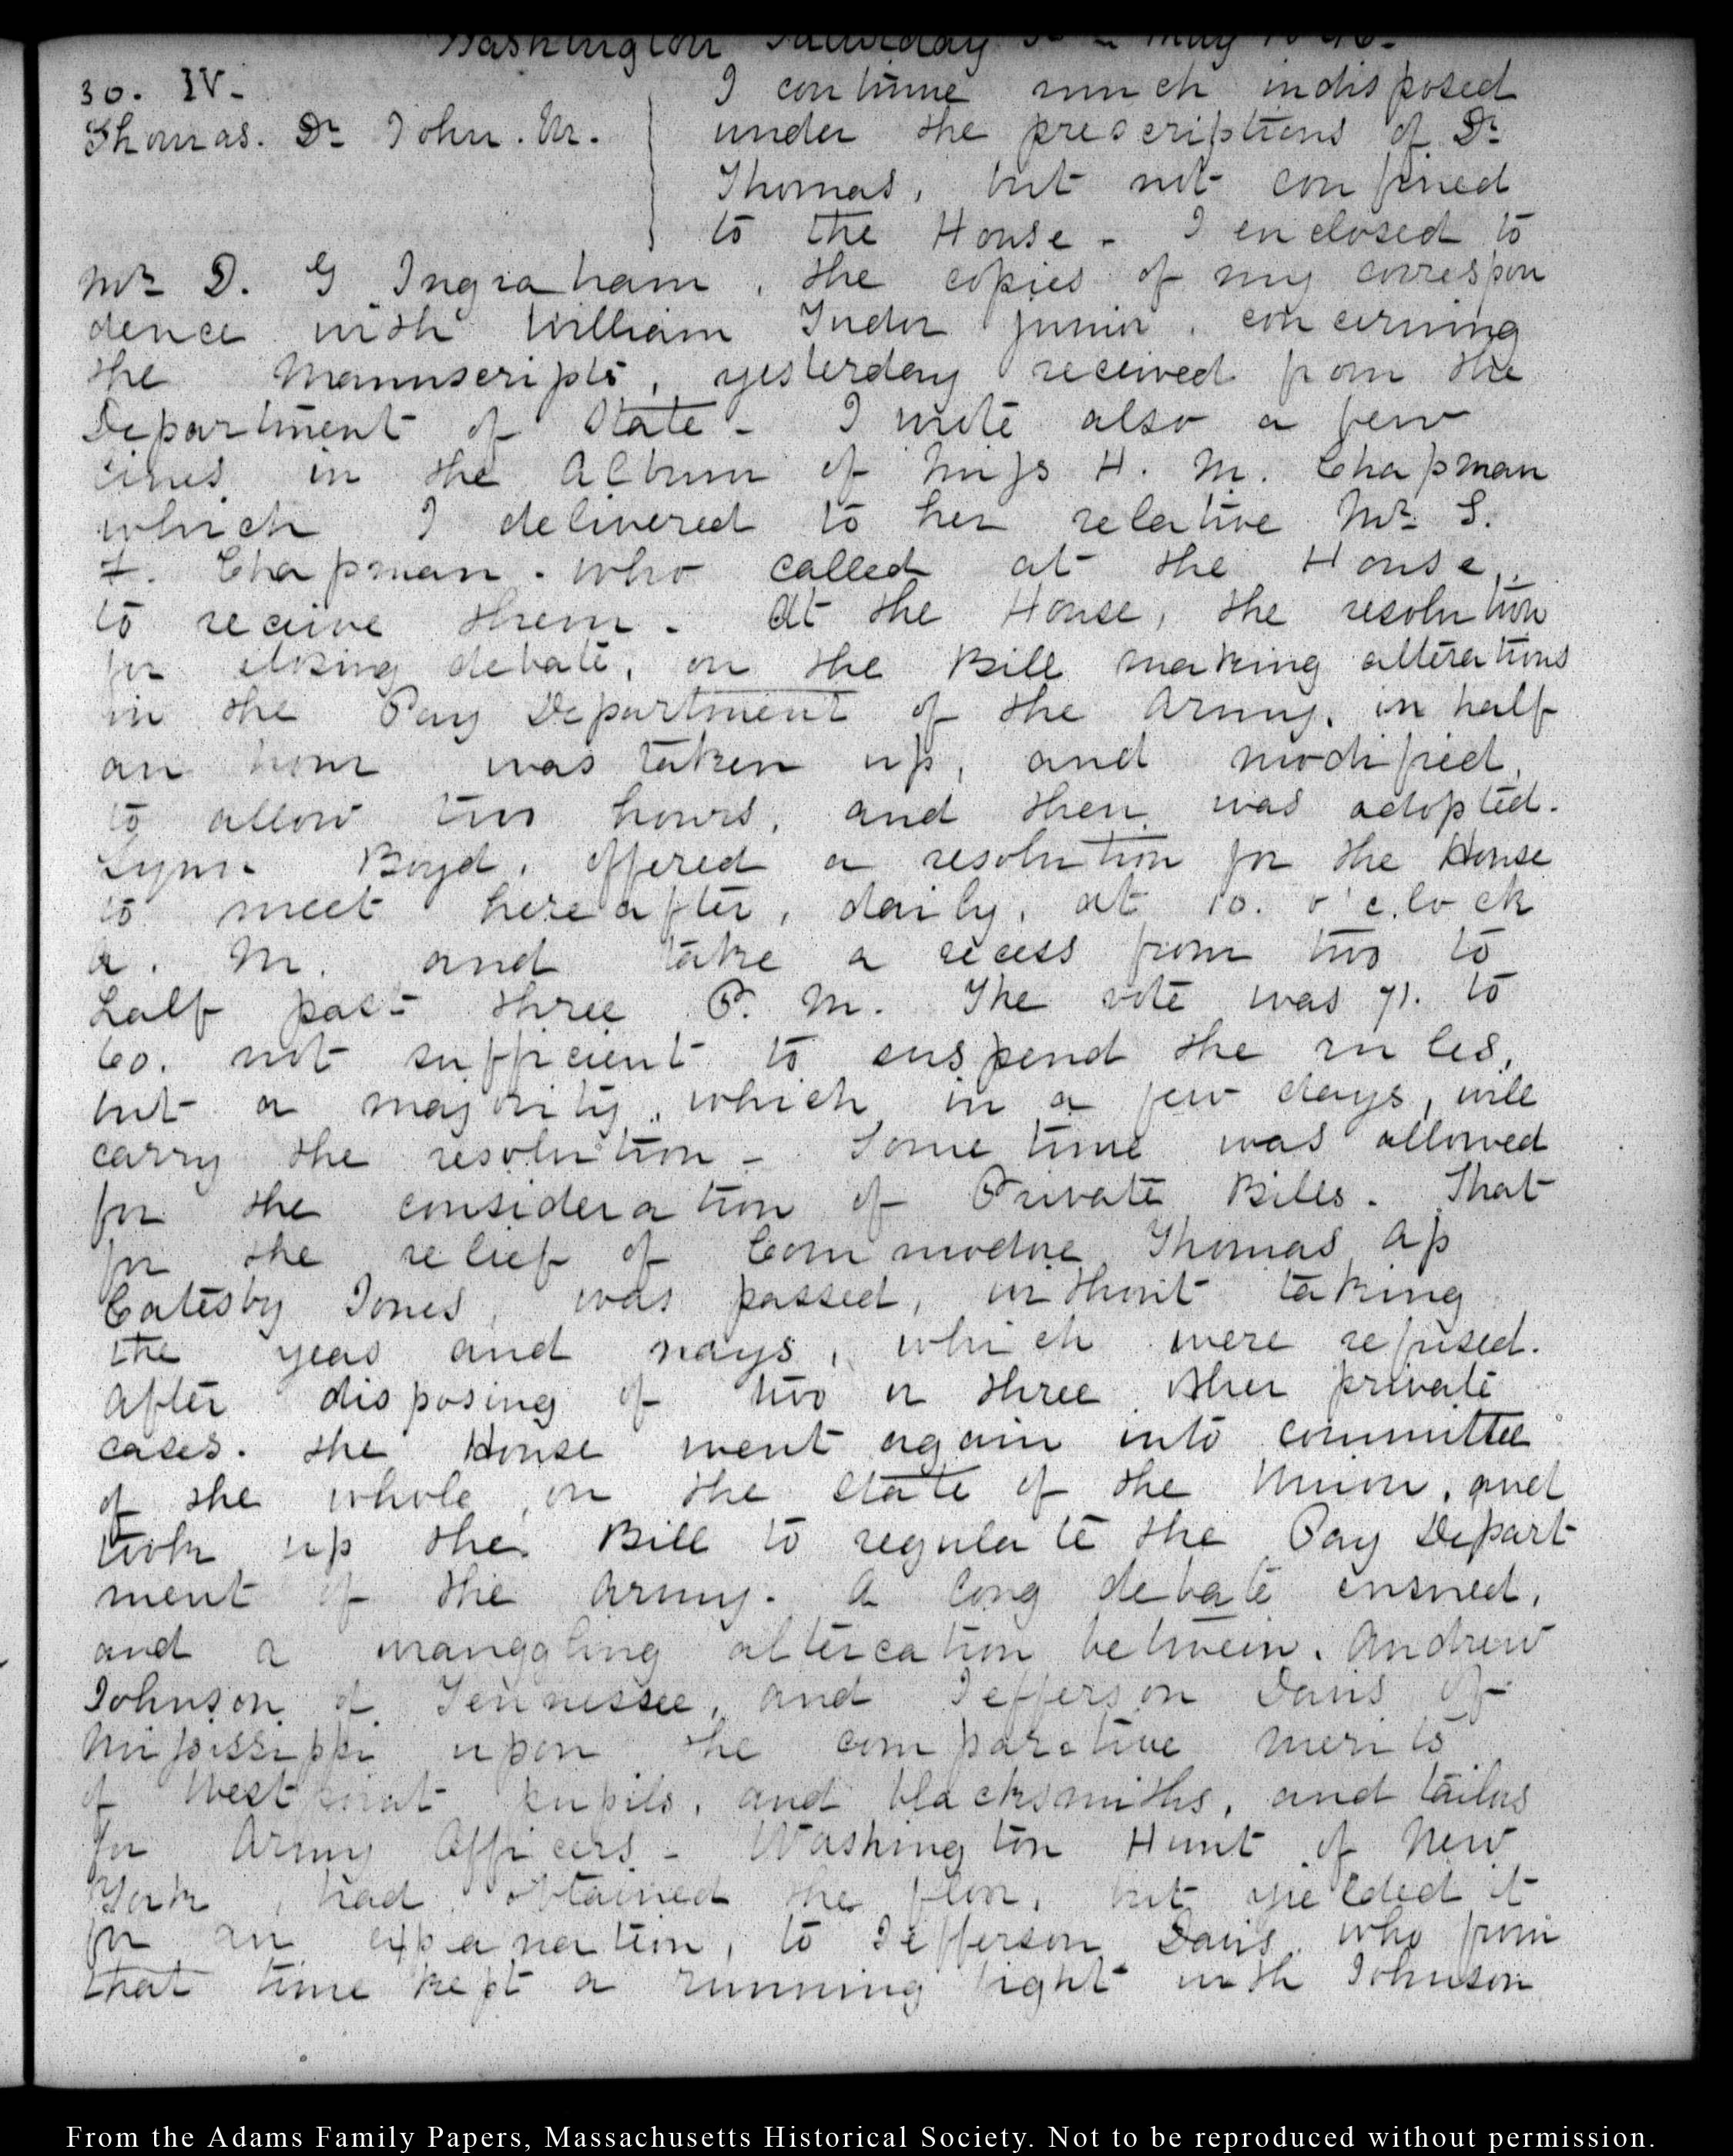 Washington Saturday 30th May 1846.
30. IV.
Thomas. Dr John. M.
I continue much indisposed
under the prescriptions of Dr
Thomas, but not confined
to the House - I enclosed to
Mr D. G Ingraham, the copies of my correspon
dence with William Tudor junior, concerning
the Manuscripts, yesterday received from the
Department of State - I wrote also a few
lines in the Album of Miss H. M. Chapman
which I delivered to her relative Mr S.
T. Chapman. who called at the House,
to receive them - At the House, the resolution
for closing debate, on the Bill making alterations
in the Pay Department of the Army, in half
an hour was taken up, and modified,
to allow two hours, and then was adopted.
Lynn Boyd, offered a resolution for the House
to meet hereafter, daily, at 10. o'clock
A. M. and take a recess from two to
half past three P. M. The vote was 71. to
60. not sufficient to suspend the rules,
but a majority, which in a few days, will
carry the resolution - Some time was allowed
for the consideration of Private Bills. That
for the relief of Commodore Thomas Ap
Catesby Jones, was passed, without taking
the yeas and nays, which were refused.
After disposing of two or three other private
cases. the House went again into committee
of the whole, on the state of the Union, and
took up the Bill to regulate the Pay Depart
ment of the Army. A long debate ensued,
and a wranggling altercation between. Andrew
Johnson of Tennessee, and Jefferson Davis of
Mississippi upon the comparative merits
of West point pupils, and blacksmiths, and tailors
for Army Officers - Washington Hunt of New
York, had obtained the floor, but yielded it
for an expanation, to Jefferson Davis, who from
that time kept a running fight with Johnson
From the Adams Family Papers, Massachusetts Historical Society. Not to be reproduced without permission.